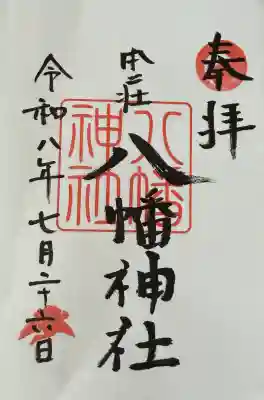 奉拝
荘
八幡神社
八幡
神社
令和八年七月二十六日